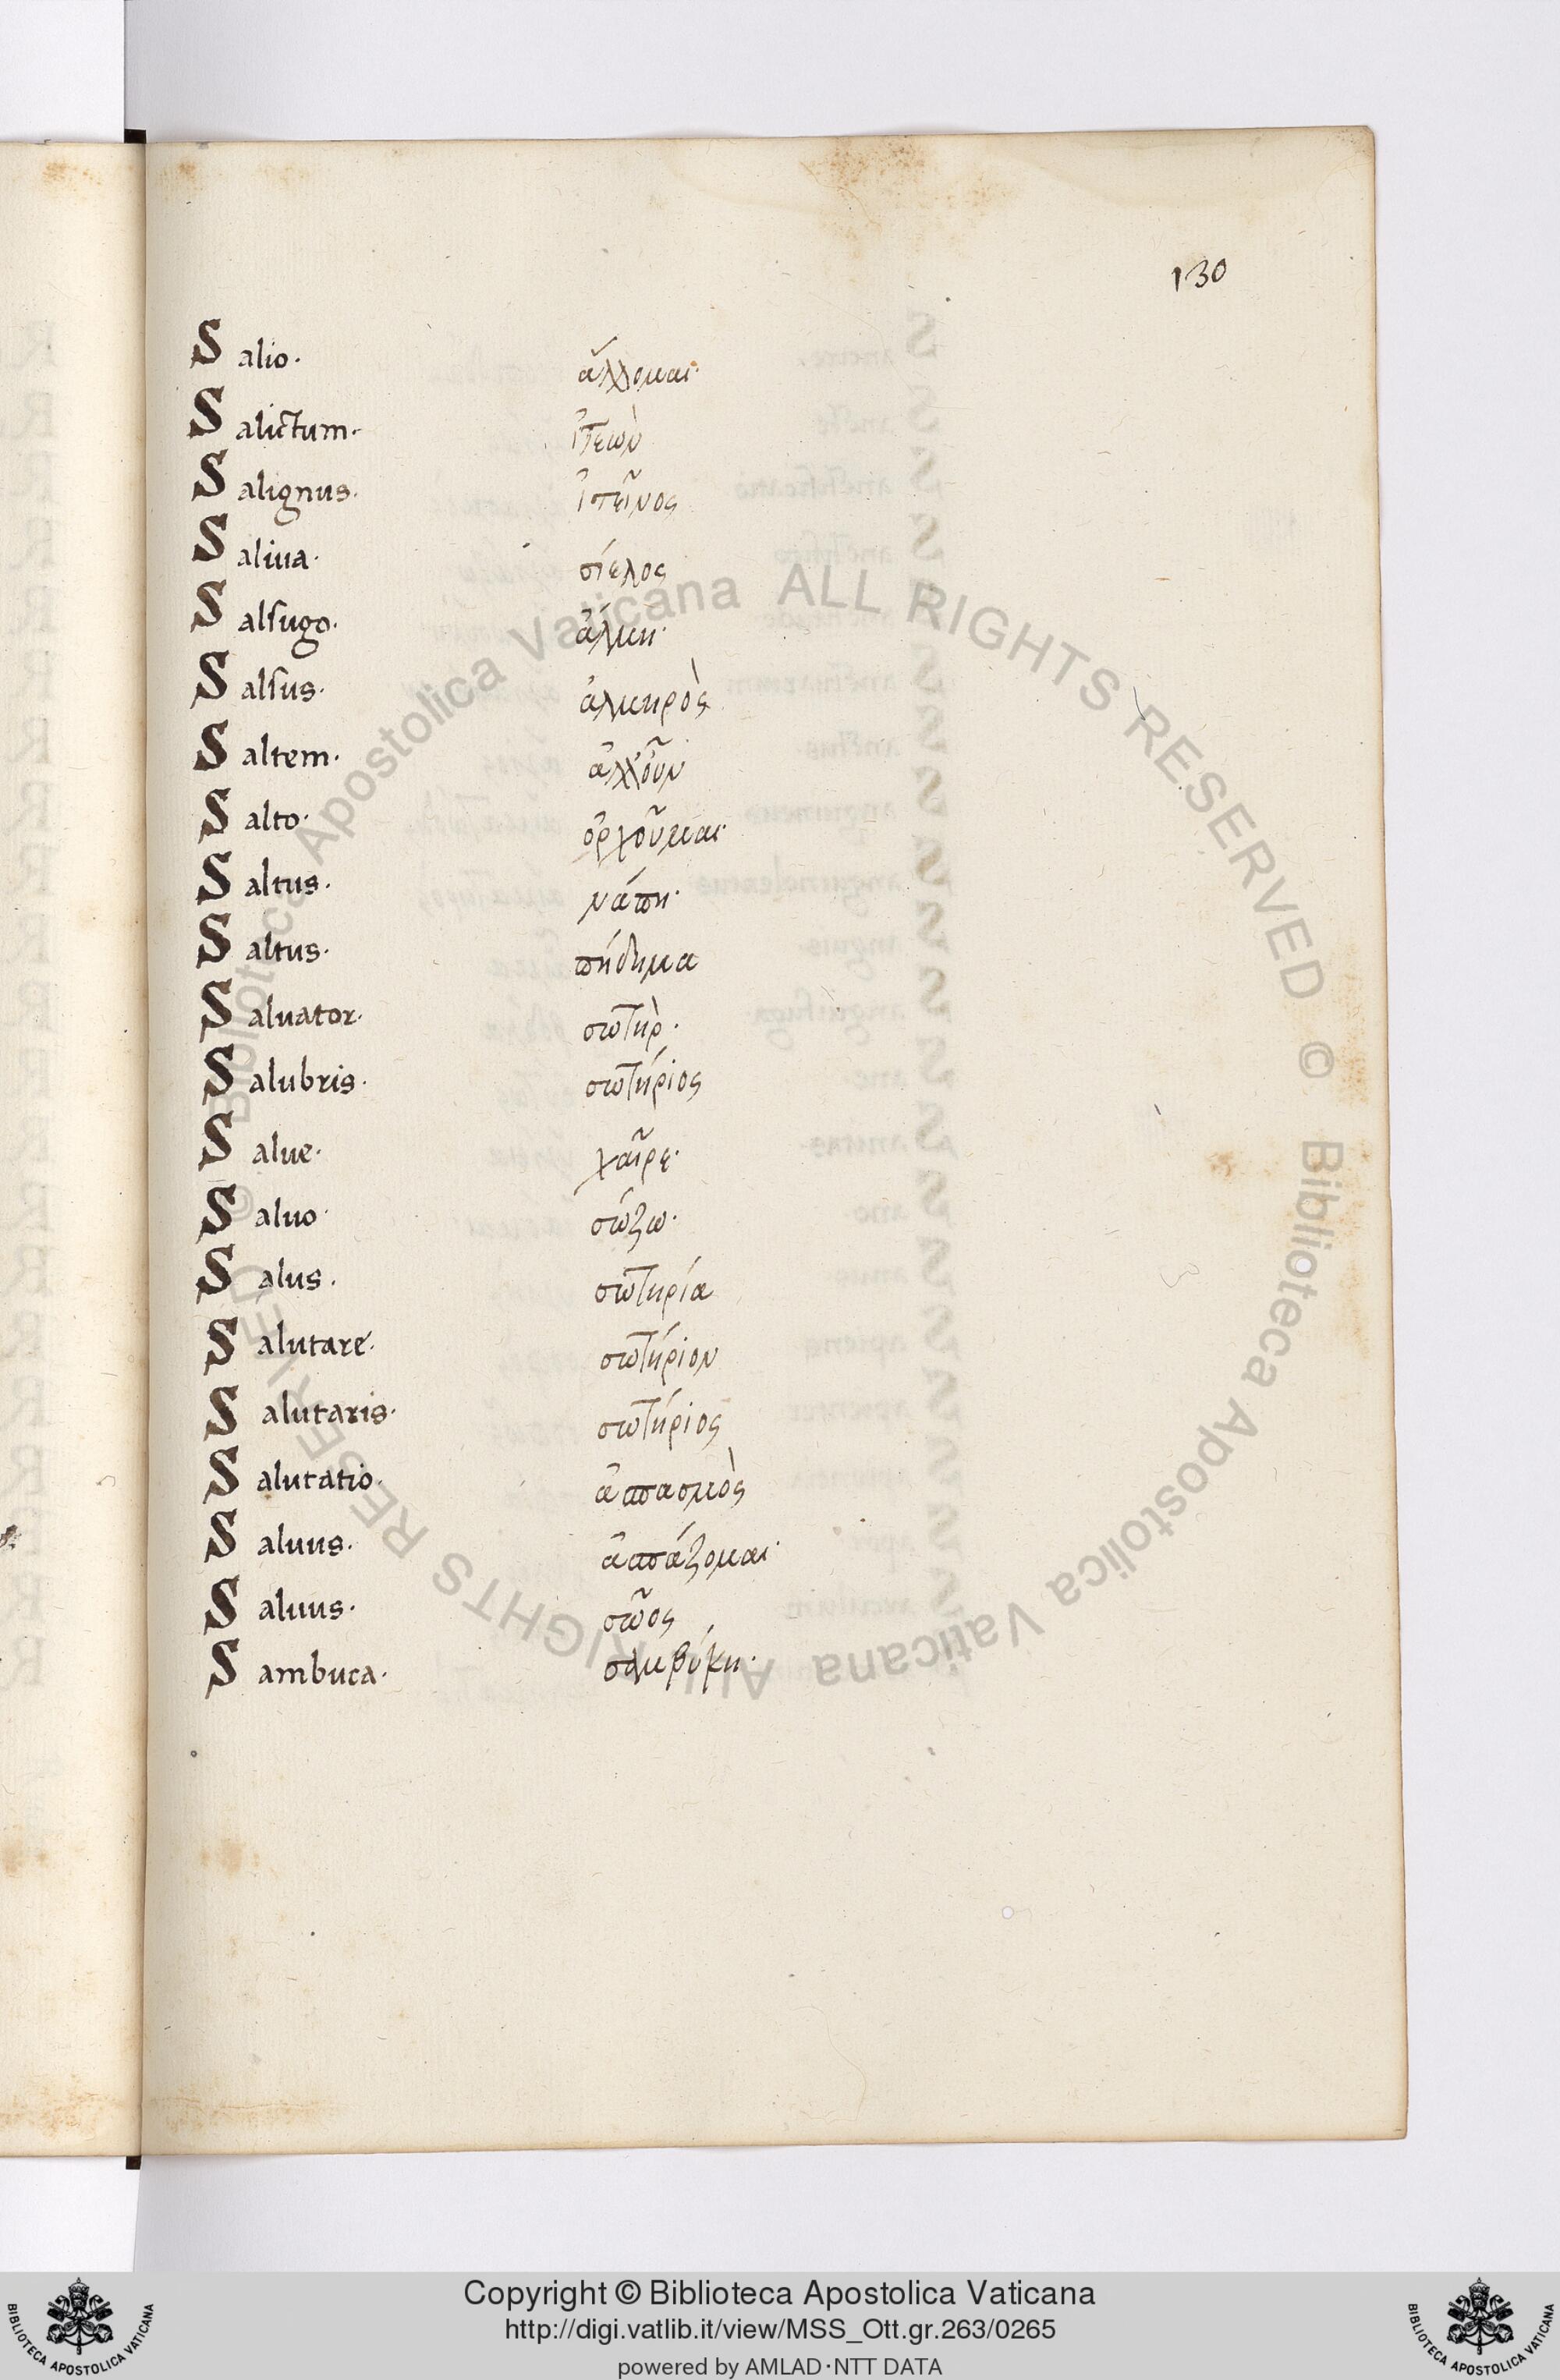 130
Salio. ἅλλομαι.
Salictum. ἰτεὼν
Salignus. ἰτεῖνος
Saliua. σίελος
Salsugo. ἅλμη.
Salsus. ἁλμηρὸς
Saltem. ἀλλ' οὖν
Salto. ὀρχοῦμαι.
Saltus. νάπη.
Saltus. πήδημα
Saluator. σωτὴρ.
Salubris. σωτήριος
Salue. χαῖρε.
Saluo. σώζω.
Salus. σωτηρία
Salutare. σωτήριον
Salutaris. σωτήριος
Salutatio. ἀσπασμὸς
Saluus. ἀσπάζομαι.
Saluus. σῶος
Sambuca. σαμβύκη.
© Biblioteca Apostolica Vaticana ALL RIGHTS RESERVED © Biblioteca Apostolica Vaticana ALL RIGHTS RESERVED
Copyright © Biblioteca Apostolica Vaticana
http://digi.vatlib.it/view/MSS_Ott.gr.263/0265
powered by AMLAD·NTT DATA
BIBLIOTECA APOSTOLICA VATICANA
BIBLIOTECA APOSTOLICA VATICANA